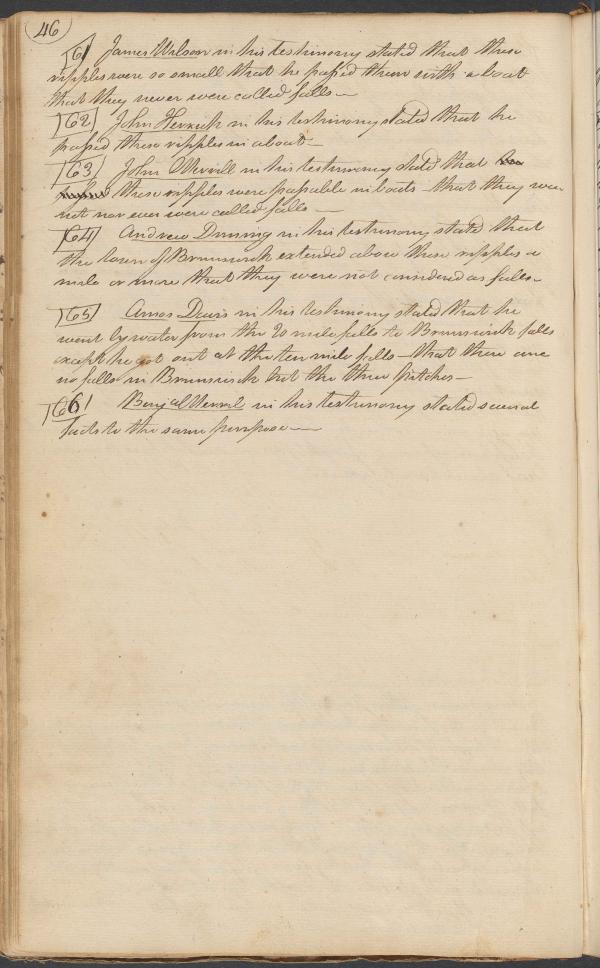 46
61 James Wilson in his testimony stated that these
ripples were so small that he passed them with a boat
that they never were called falls—
62 John Herrick in his testimony stated that he
passed these ripples in a boat—
63 John Merrill in his testimony stated that he
passed these ripples were passable in boats—that they were
not nor ever were called falls—
64 Andrew Dunning in his testimony stated that
the town of Brunswick extended above these ripples a
mile or more that they were not considered as falls—
65 Amos Davis in his testimony stated that he
went by water from the 20 mile falls to Brunswick falls
except he got out at the ten mile falls—that there are
no falls in Brunswick but the three pitches—
66 Benja Merril in his testimony stated several
facts to the same purpose—